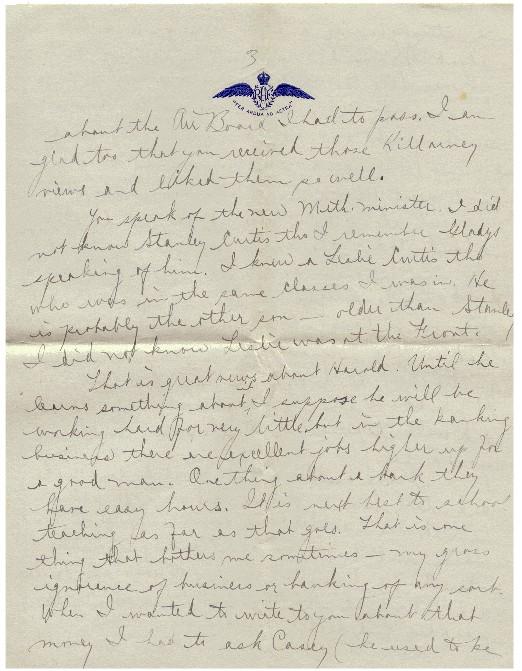 3
RAF
PER ARDUA AD ASTRA
about the Air Board I had to pass. I am
glad too that you received those Killarney
views and liked them so well.
You speak of the new Meth. minister. I did
not know Stanley Curtis tho I remember Gladys
speaking of him. I knew a Leslie Curtis tho
who was in the same classes I was in. He
is probably the other son — older than Stanley
I did not know Leslie was at the Front. !
That is great news about Harold. Until he
learns something about it I suppose he will be
working hard for very little but in the banking
business there are excellent jobs higher up for
a good man. One thing about a bank they
have easy hours. It is next best to school
teaching as far as that goes. That is one
thing that bothers me sometimes — my gross
ignorence of business or banking of any sort.
When I wanted to write to you about that
money I had to ask Casey (he used to be